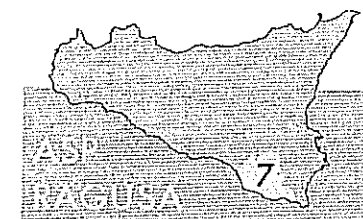 ASP
7
RAGUSA